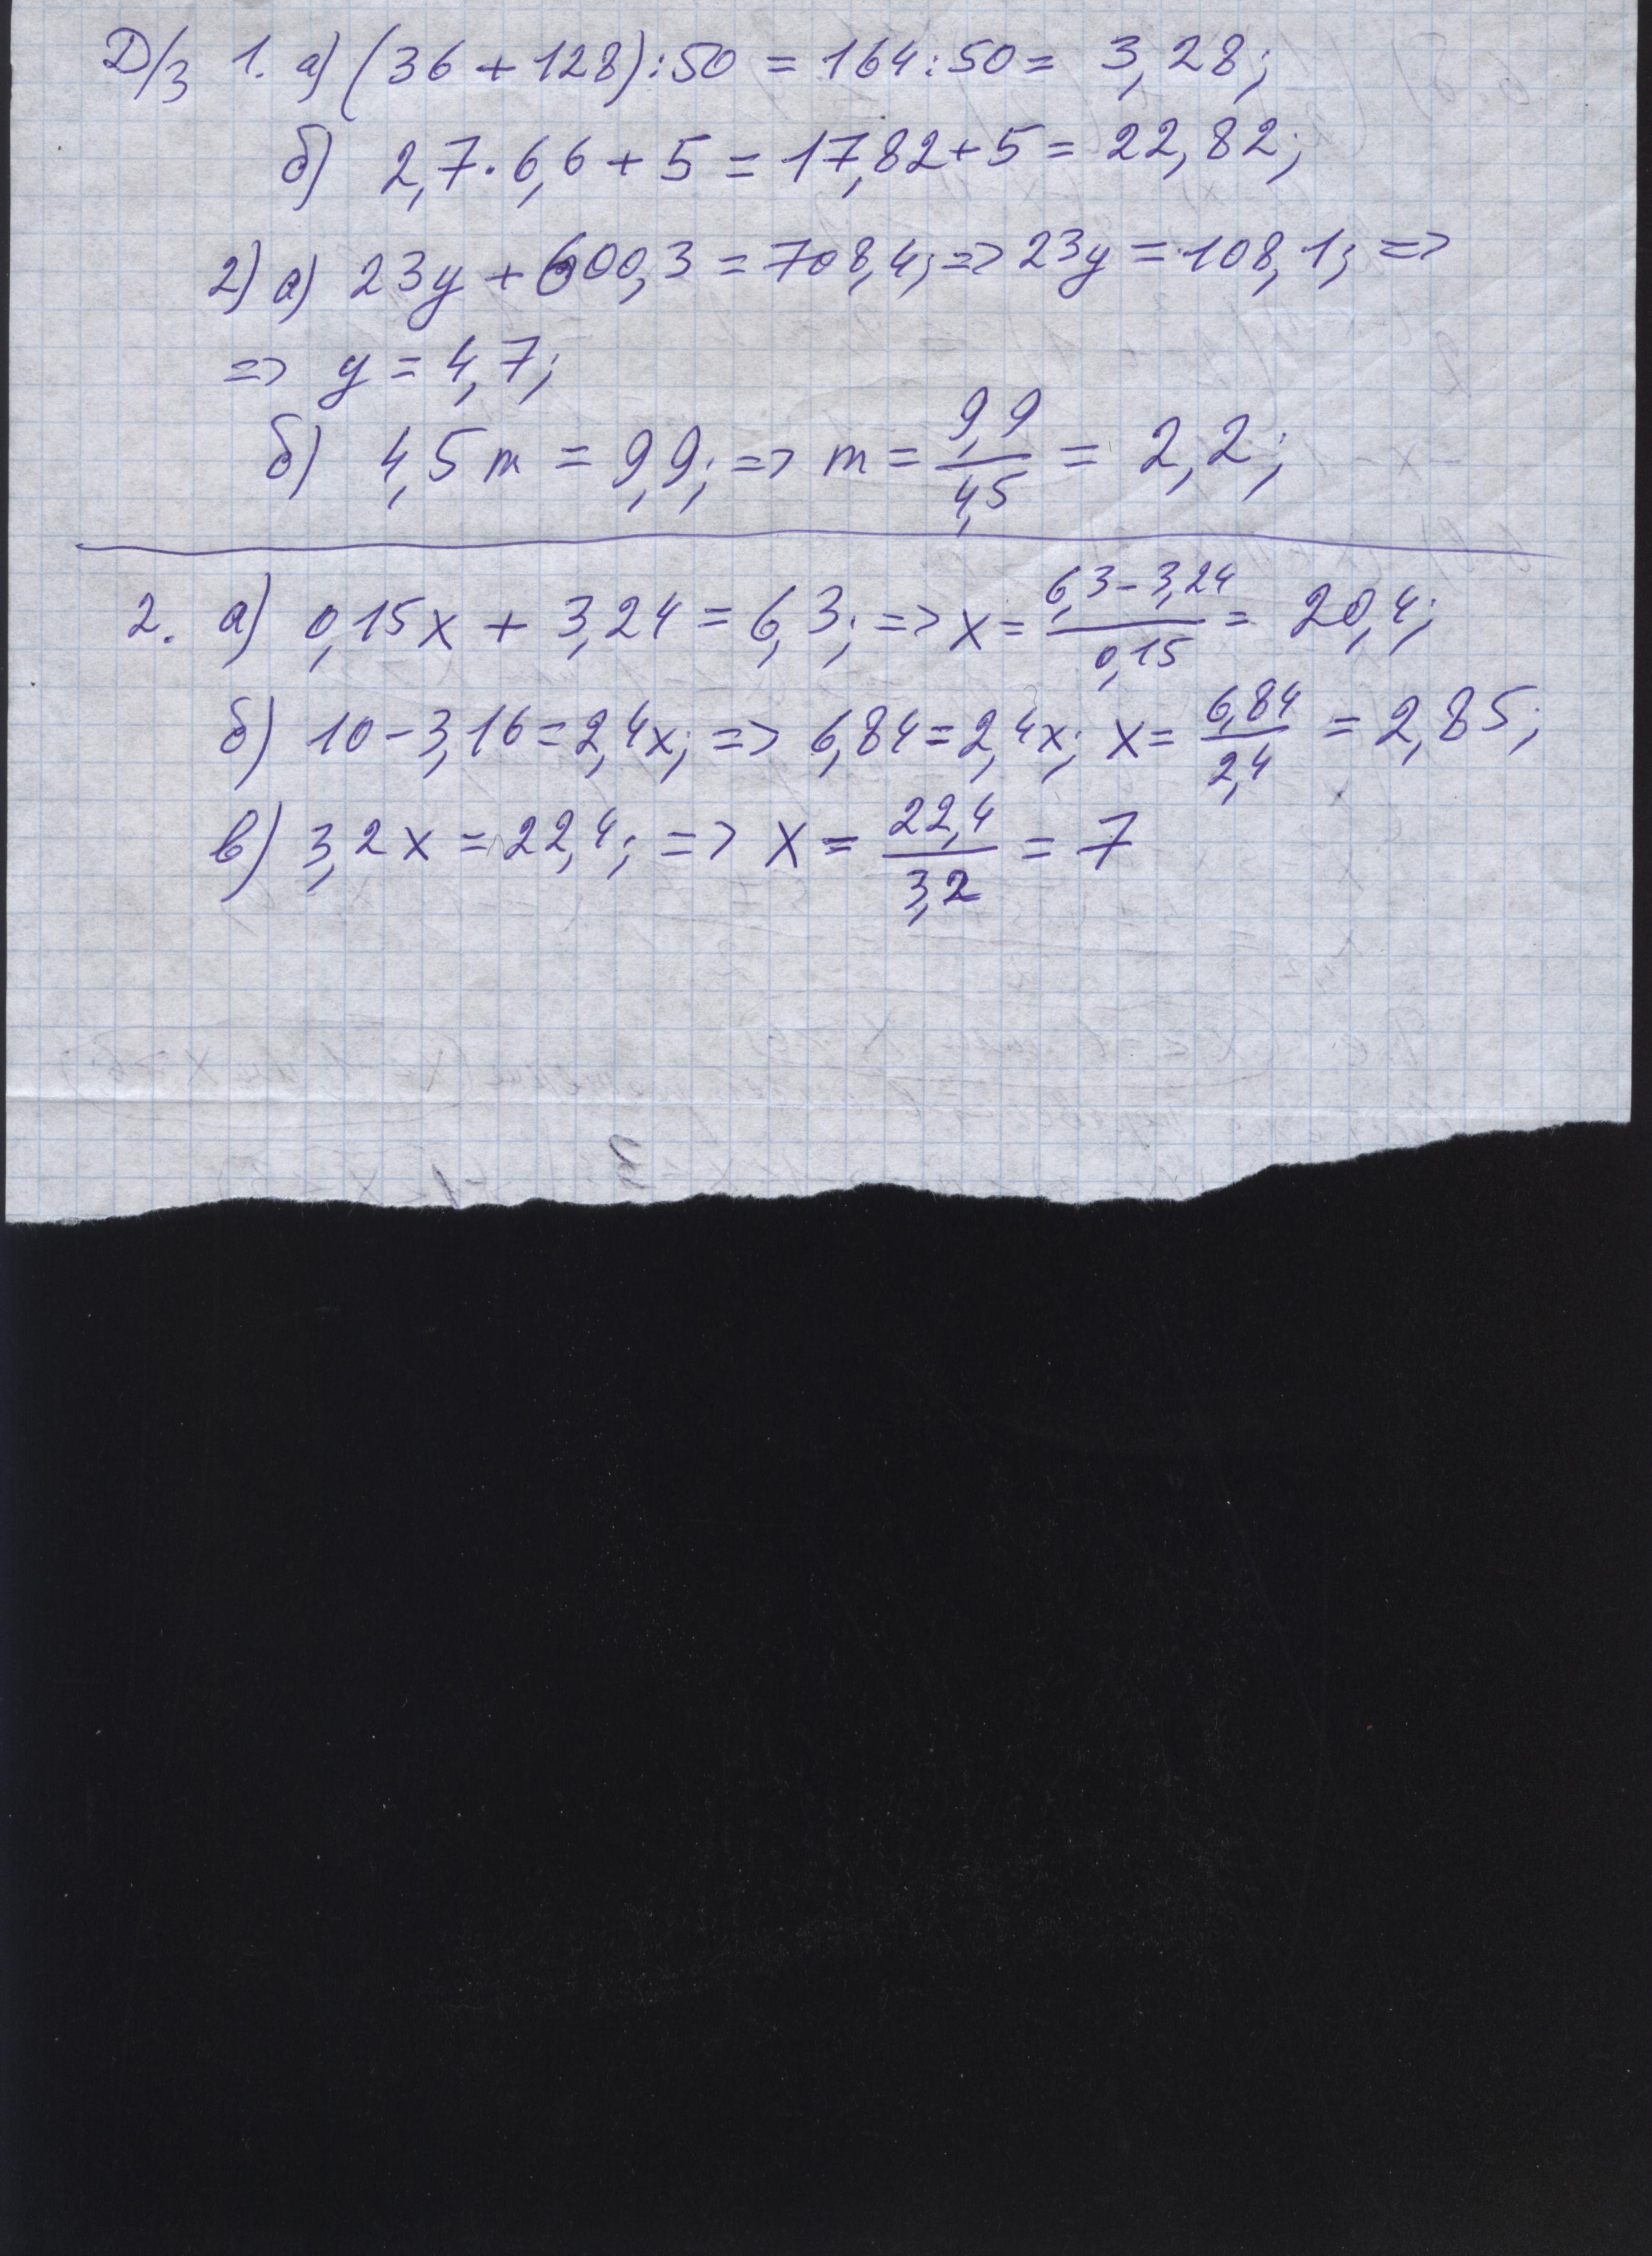 Д/з 1. а) (36 + 128) : 50 = 164 : 50 = 3,28;
б) 2,7 · 6,6 + 5 = 17,82 + 5 = 22,82;
2) а) 23y + 600,3 = 708,4; => 23y = 108,1; =>
=> y = 4,7;
б) 4,5m = 9,9; => m = 9,9/4,5 = 2,2;
2. а) 0,15x + 3,24 = 6,3; => x = 6,3 - 3,24/0,15 = 20,4;
б) 10 - 3,16 = 2,4x; => 6,84 = 2,4x; x = 6,84/2,4 = 2,85;
в) 3,2x = 22,4; => x = 22,4/3,2 = 7